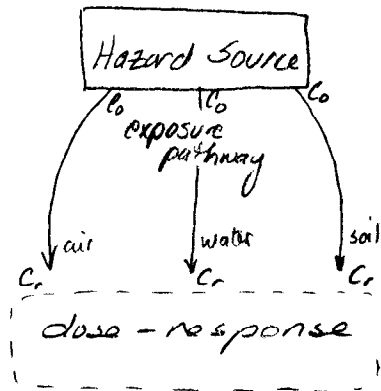 Hazard Source
C₀ C₀ C₀
exposure
pathway
air water soil
Cᵣ Cᵣ Cᵣ
dose-response